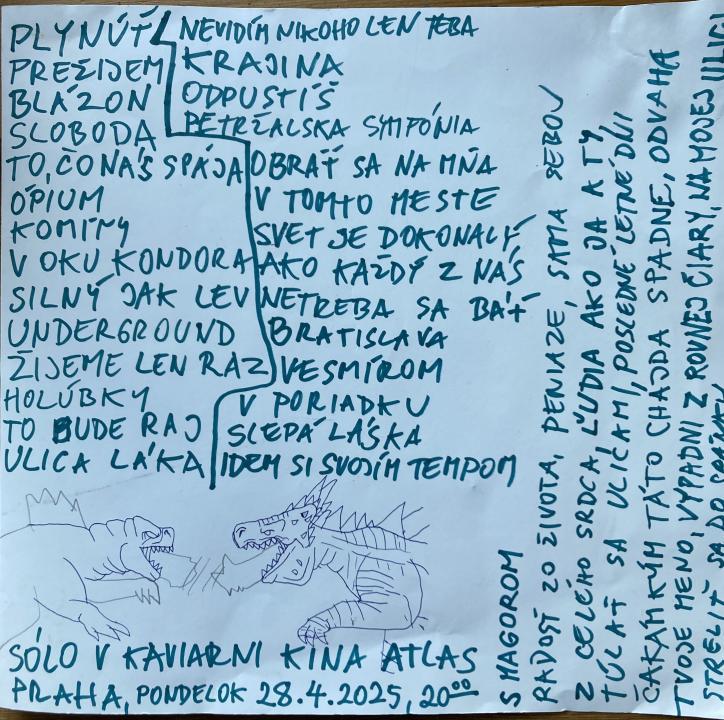 PLYNÚŤ
PREŽIJEM
BLÁZON
SLOBODA
TO, ČO NÁS SPÁJA
ÓPIUM
KOMÍNY
V OKU KONDORA
SILNÝ JAK LEV
UNDERGROUND
ŽIJEME LEN RAZ
HOLÚBKY
TO BUDE RAJ
ULICA LÁKA
NEVIDÍM NIKOHO LEN TEBA
KRAJINA
ODPUSTÍŠ
PETRŽALSKA SYMFÓNIA
OBRÁŤ SA NA MŇA
V TOMTO MESTE
SVET JE DOKONALÝ
AKO KAŽDÝ Z NÁS
NETREBA SA BÁŤ
BRATISLAVA
VESMÍROM
V PORIADKU
SLEPÁ LÁSKA
IDEM SI SVOJÍM TEMPOM
SÓLO V KAVIARNI KINA ATLAS
PRAHA, PONDELOK 28.4.2025, 20⁰⁰
S MAGOROM
RADOSŤ ZO ŽIVOTA, PENIAZE, SAMA SEBOU
Z CELÉHO SRDCA, ĽUDIA AKO JA A TY,
TÚLAŤ SA ULICAMI, POSLEDNÉ LETNÉ DNI
ČAKÁM KÝM TÁTO CHAJDA SPADNE, ODVAHA
TVOJE MENO, VYPADNI Z ROVNEJ ČIARY, NA MOJEJ ULICI